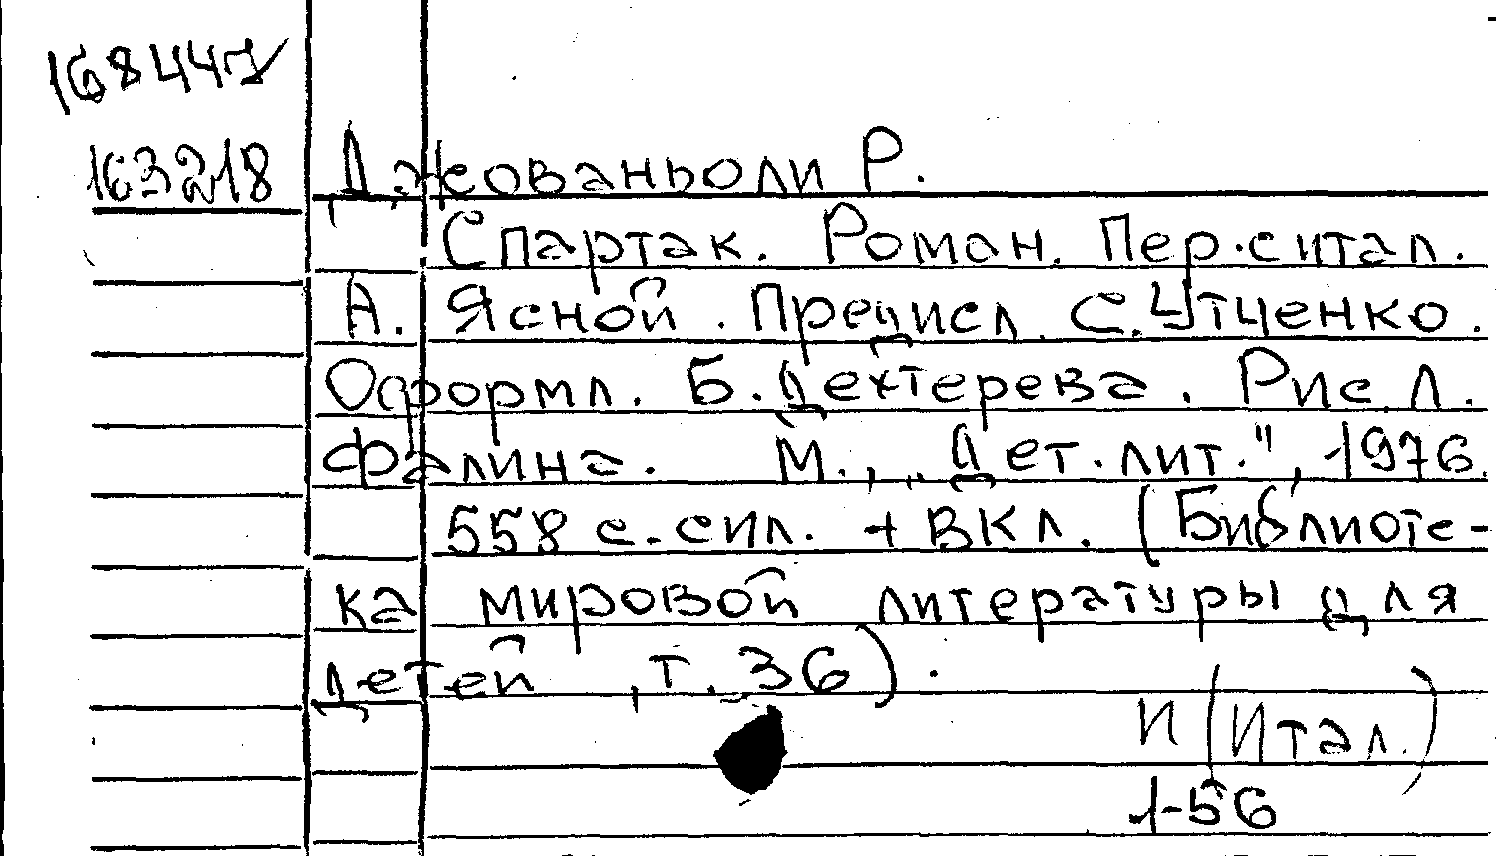 168447
163218 Джованьоли Р.
Спартак. Роман. Пер. с итал.
А. Ясной. Предисл. С. Утченко.
Оформл. Б. Дехтерева. Рис. Л.
Фалина. М., „Дет. лит.", 1976.
558 с. с ил. + вкл. (Библиоте-
ка мировой литературы для
детей, т. 36).
И (Итал.)
1-56